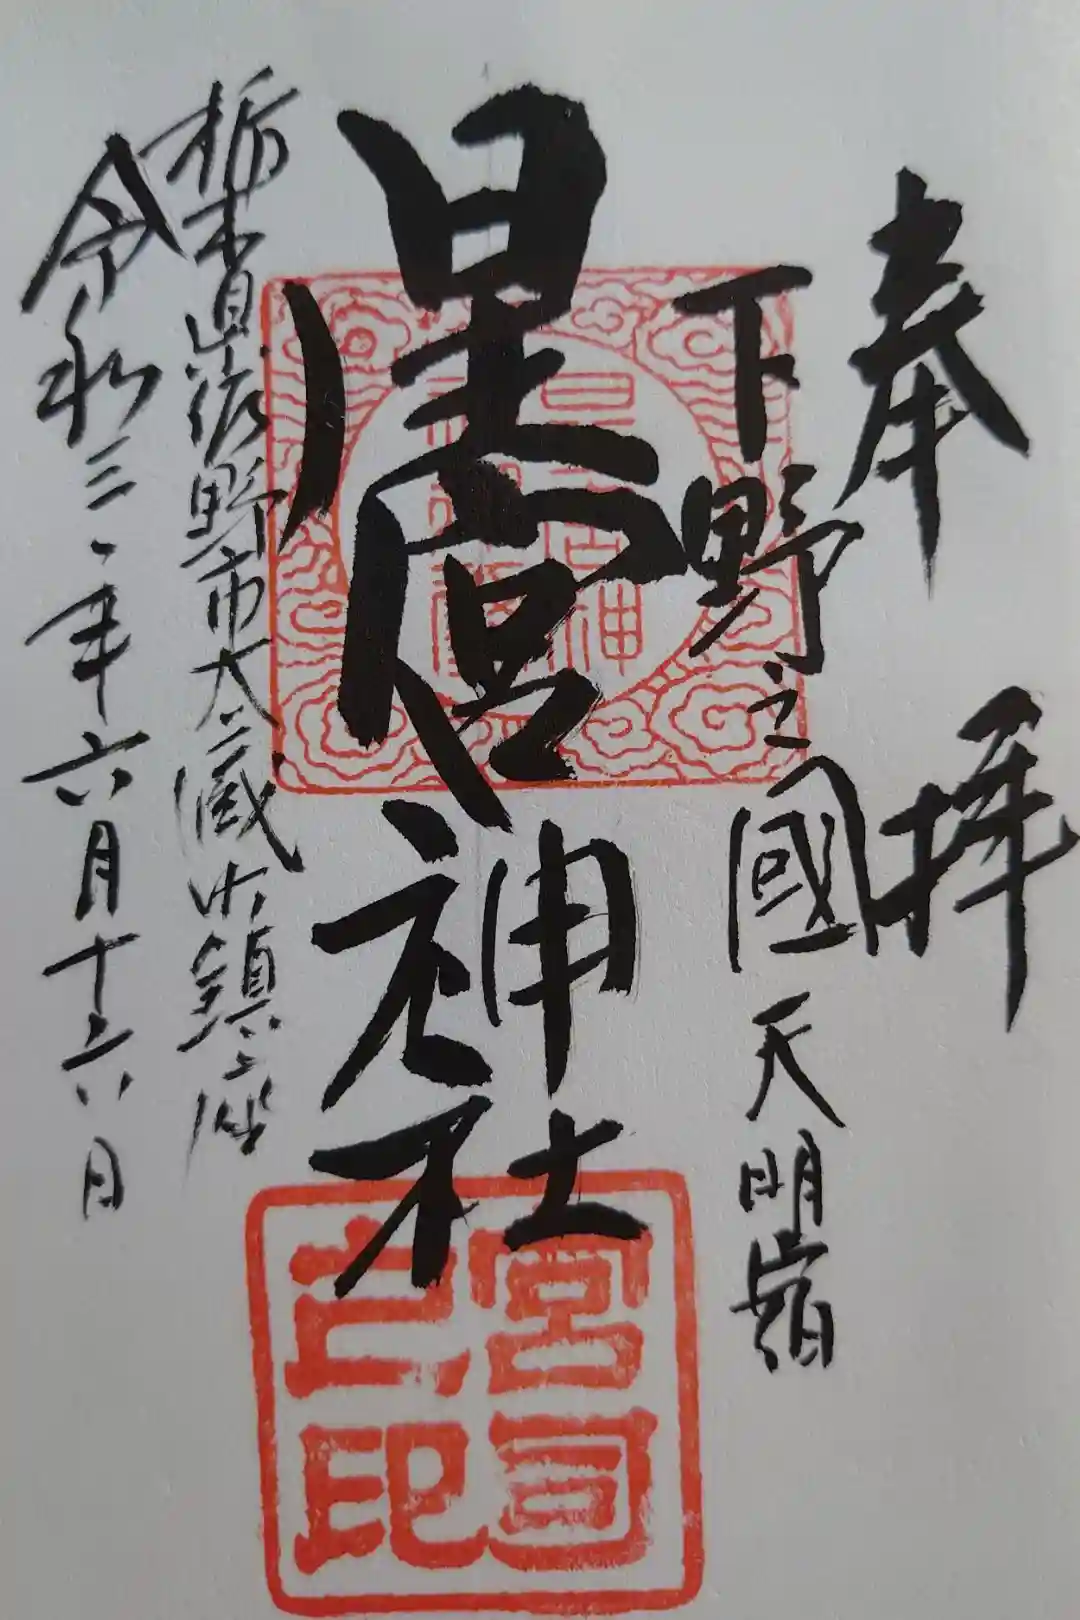 奉拝
下野之國天明宿
星宮神社
栃木県佐野市大蔵町鎮座
令和三年六月十六日
宮司
之印